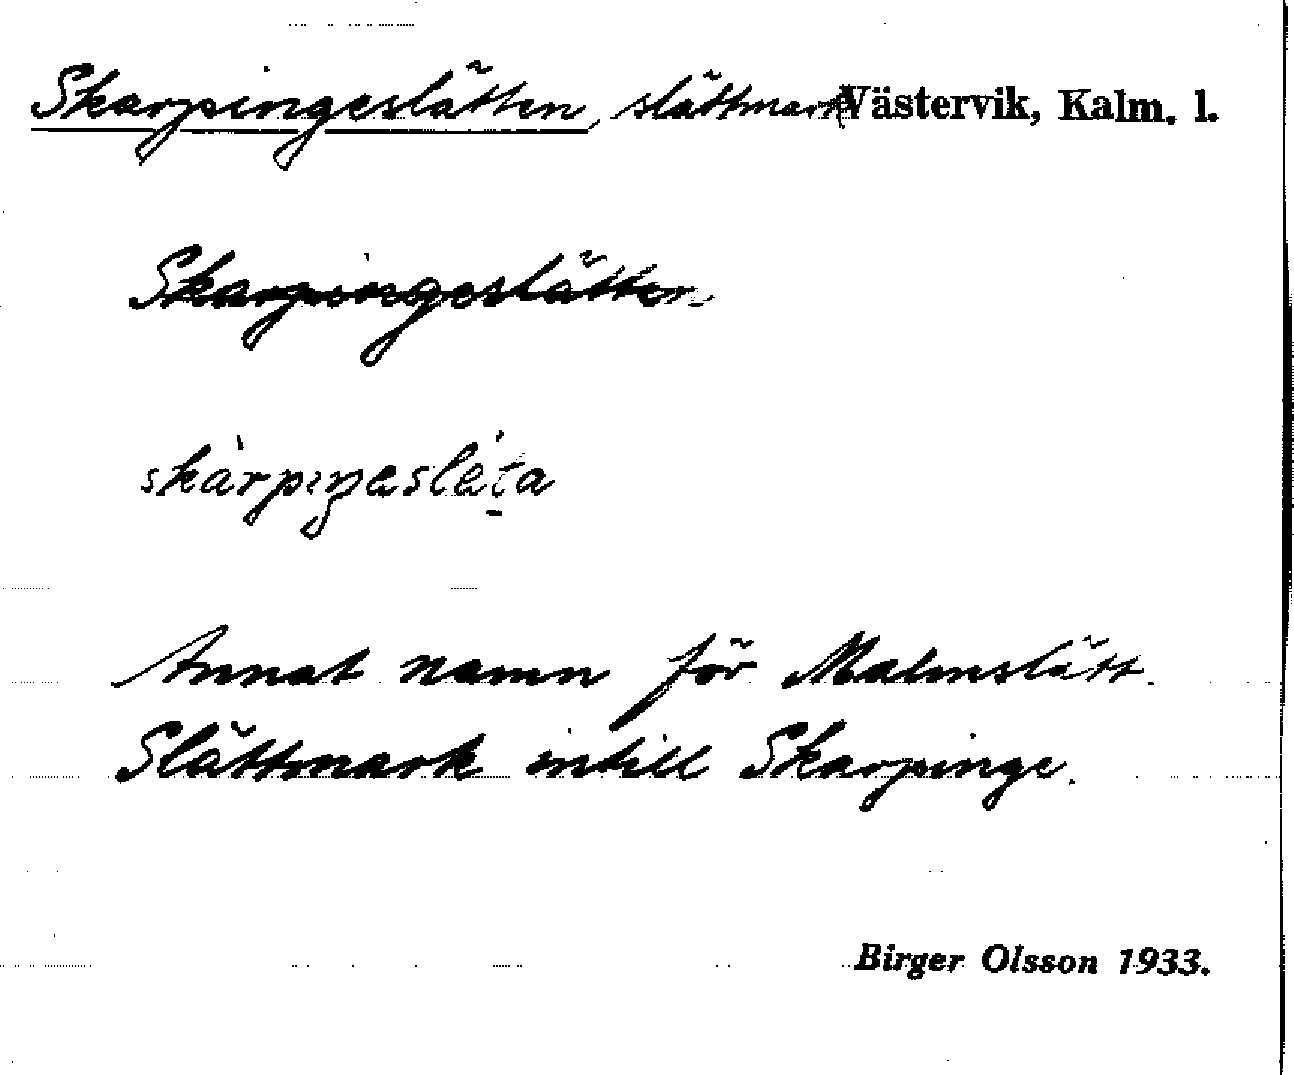 Skarpingeslätten, slättmark Västervik, Kalm. l.
Skarpingeslätten
skàrpıŋəsléta
Annat namn för Malmslätt.
Slättmark intill Skarpinge.
Birger Olsson 1933.